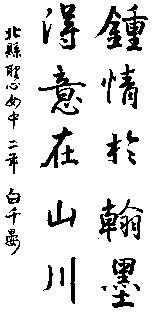 鍾情於翰墨
得意在山川
北縣聖心女中二年 白千晏